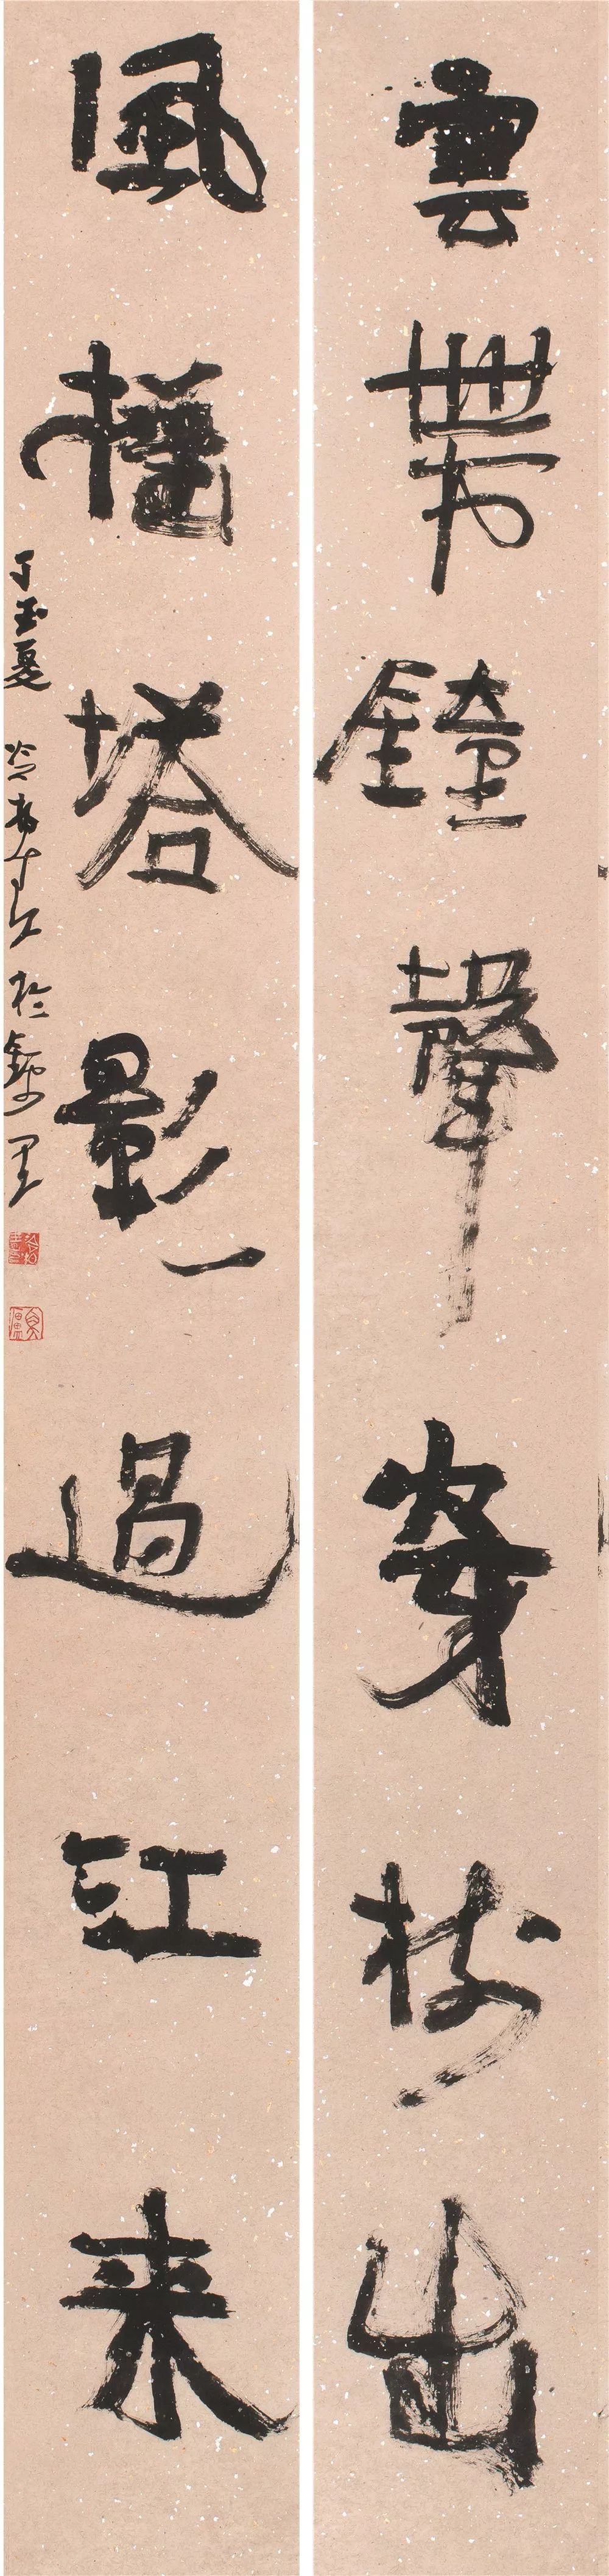 雲帶鐘聲穿樹出
風搖塔影過江來
丁玉夏
於